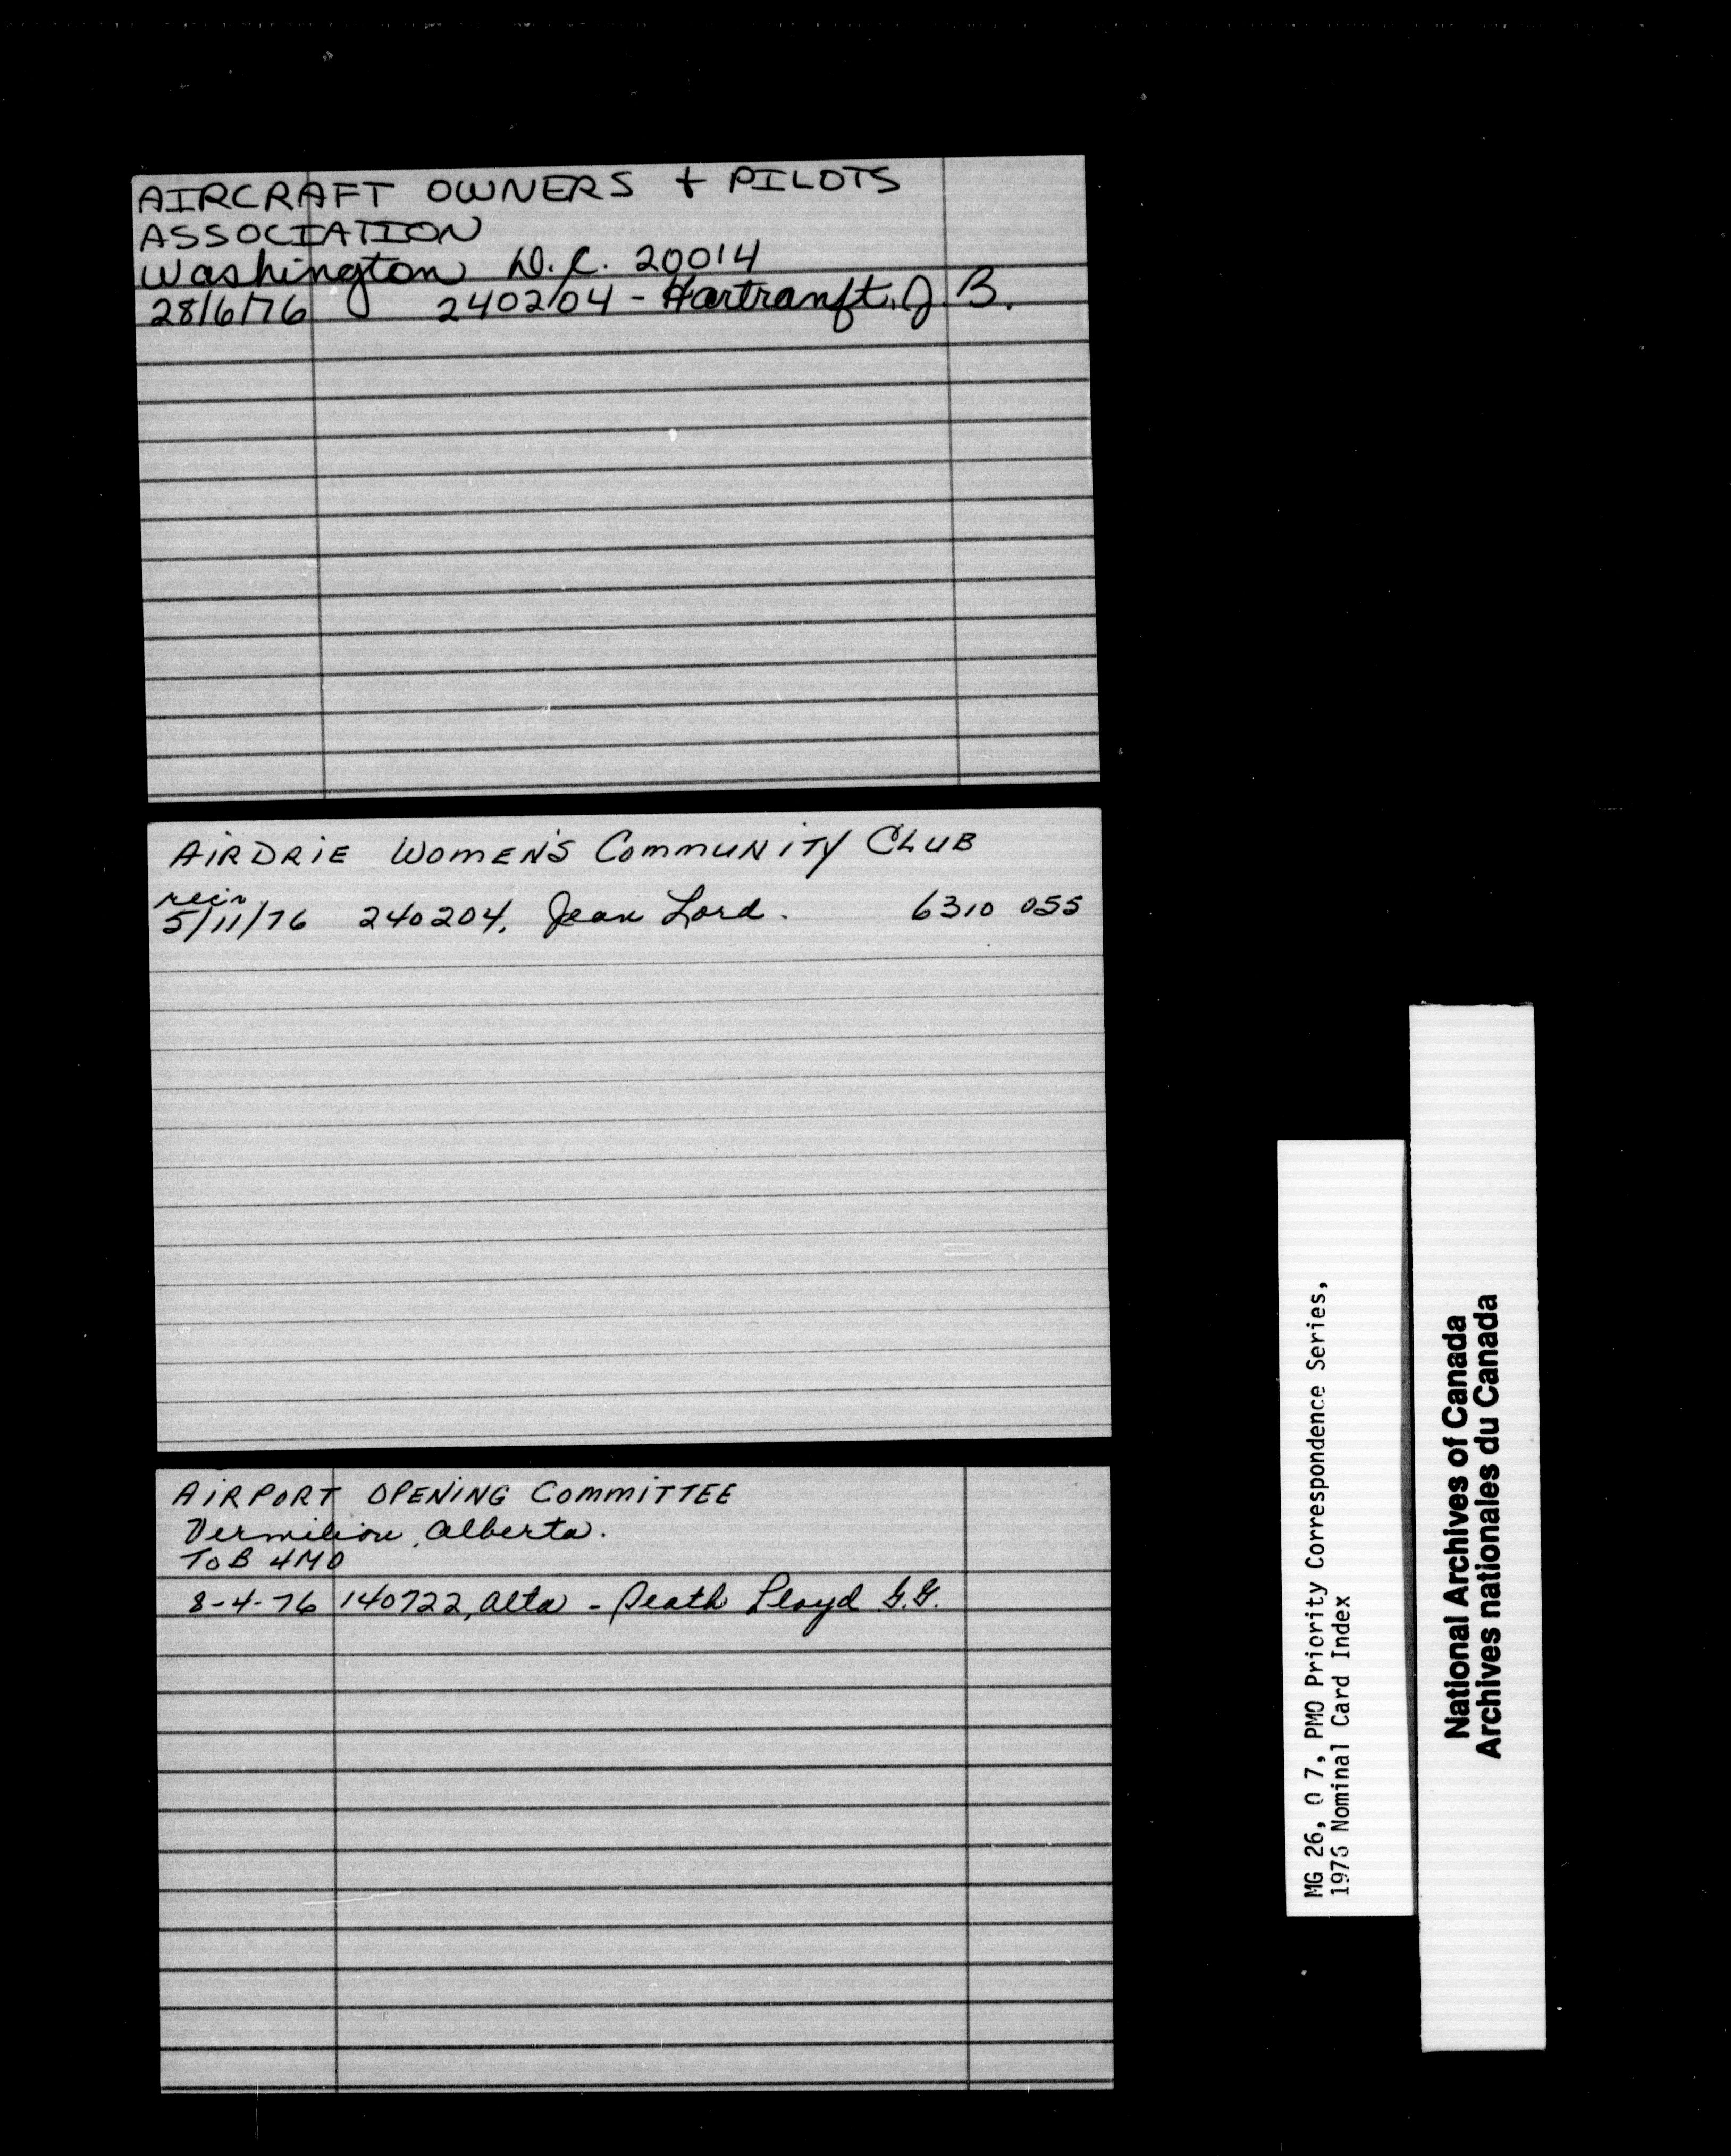 AIRCRAFT OWNERS + PILOTS
ASSOCIATION
Washington D.C. 20014
28/6/76 240204 - Hartranft, J. B.
AIRDRIE WOMEN'S COMMUNITY CLUB
rec'n
5/11/76 240204, Jean Lord. 6310 055
AIRPORT OPENING COMMITTEE
Vermilion, Alberta.
T0B 4M0
8-4-76 140722, Alta - Death Lloyd G.G.
MG 26, O 7, PMO Priority Correspondence Series,
1976 Nominal Card Index
National Archives of Canada
Archives nationales du Canada